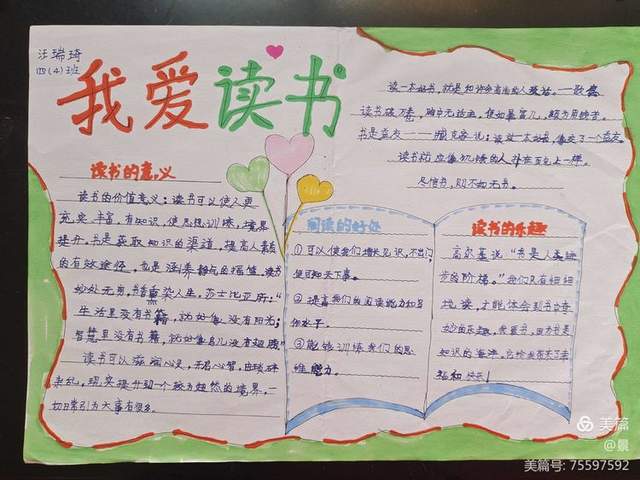 汪瑞琦
四(4)班
我爱读书
读一本好书,就是和许多高尚的人谈话。——歌德
读书破万卷,胸中无适主,便如暴富儿,颇为用钱苦。
书是益友——臧克家说:读过一本好书,像交了一个益友。
读书就应像饥饿的人扑在面包上一样。
尽信书,则不如无书。
读书的意义
读书的价值意义:读书可以使人更
充实丰富,有知识,使思想训练,境界
提升,书是获取知识的渠道,提高人素质
的有效途径,也是涵养静气的摇篮,读书
妙处无穷,书香熏染人生,莎士比亚所:"
生活里没有书籍,就好像没有阳光;
智慧里没有书籍,就好像鸟儿没有翅膀"
读书可以滋润心灵,开启心智,由琐碎
杂乱,现实提升到一个较为超然的境界,一
切日常引为大事有很多
阅读的好处
①可以使我们增长见识,不出门
便可知天下事。
②提高我们的阅读能力和写
作水平。
③能够训练我们的思
维能力。
读书的乐趣
高尔基说"书是人类进
步的阶梯。"我们只有细细
阅读,才能体会到书中奇
妙的乐趣,我爱书,因为书是
知识的海洋,它给我带来了幸
福和快乐!
美篇
@景
美篇号: 75597592